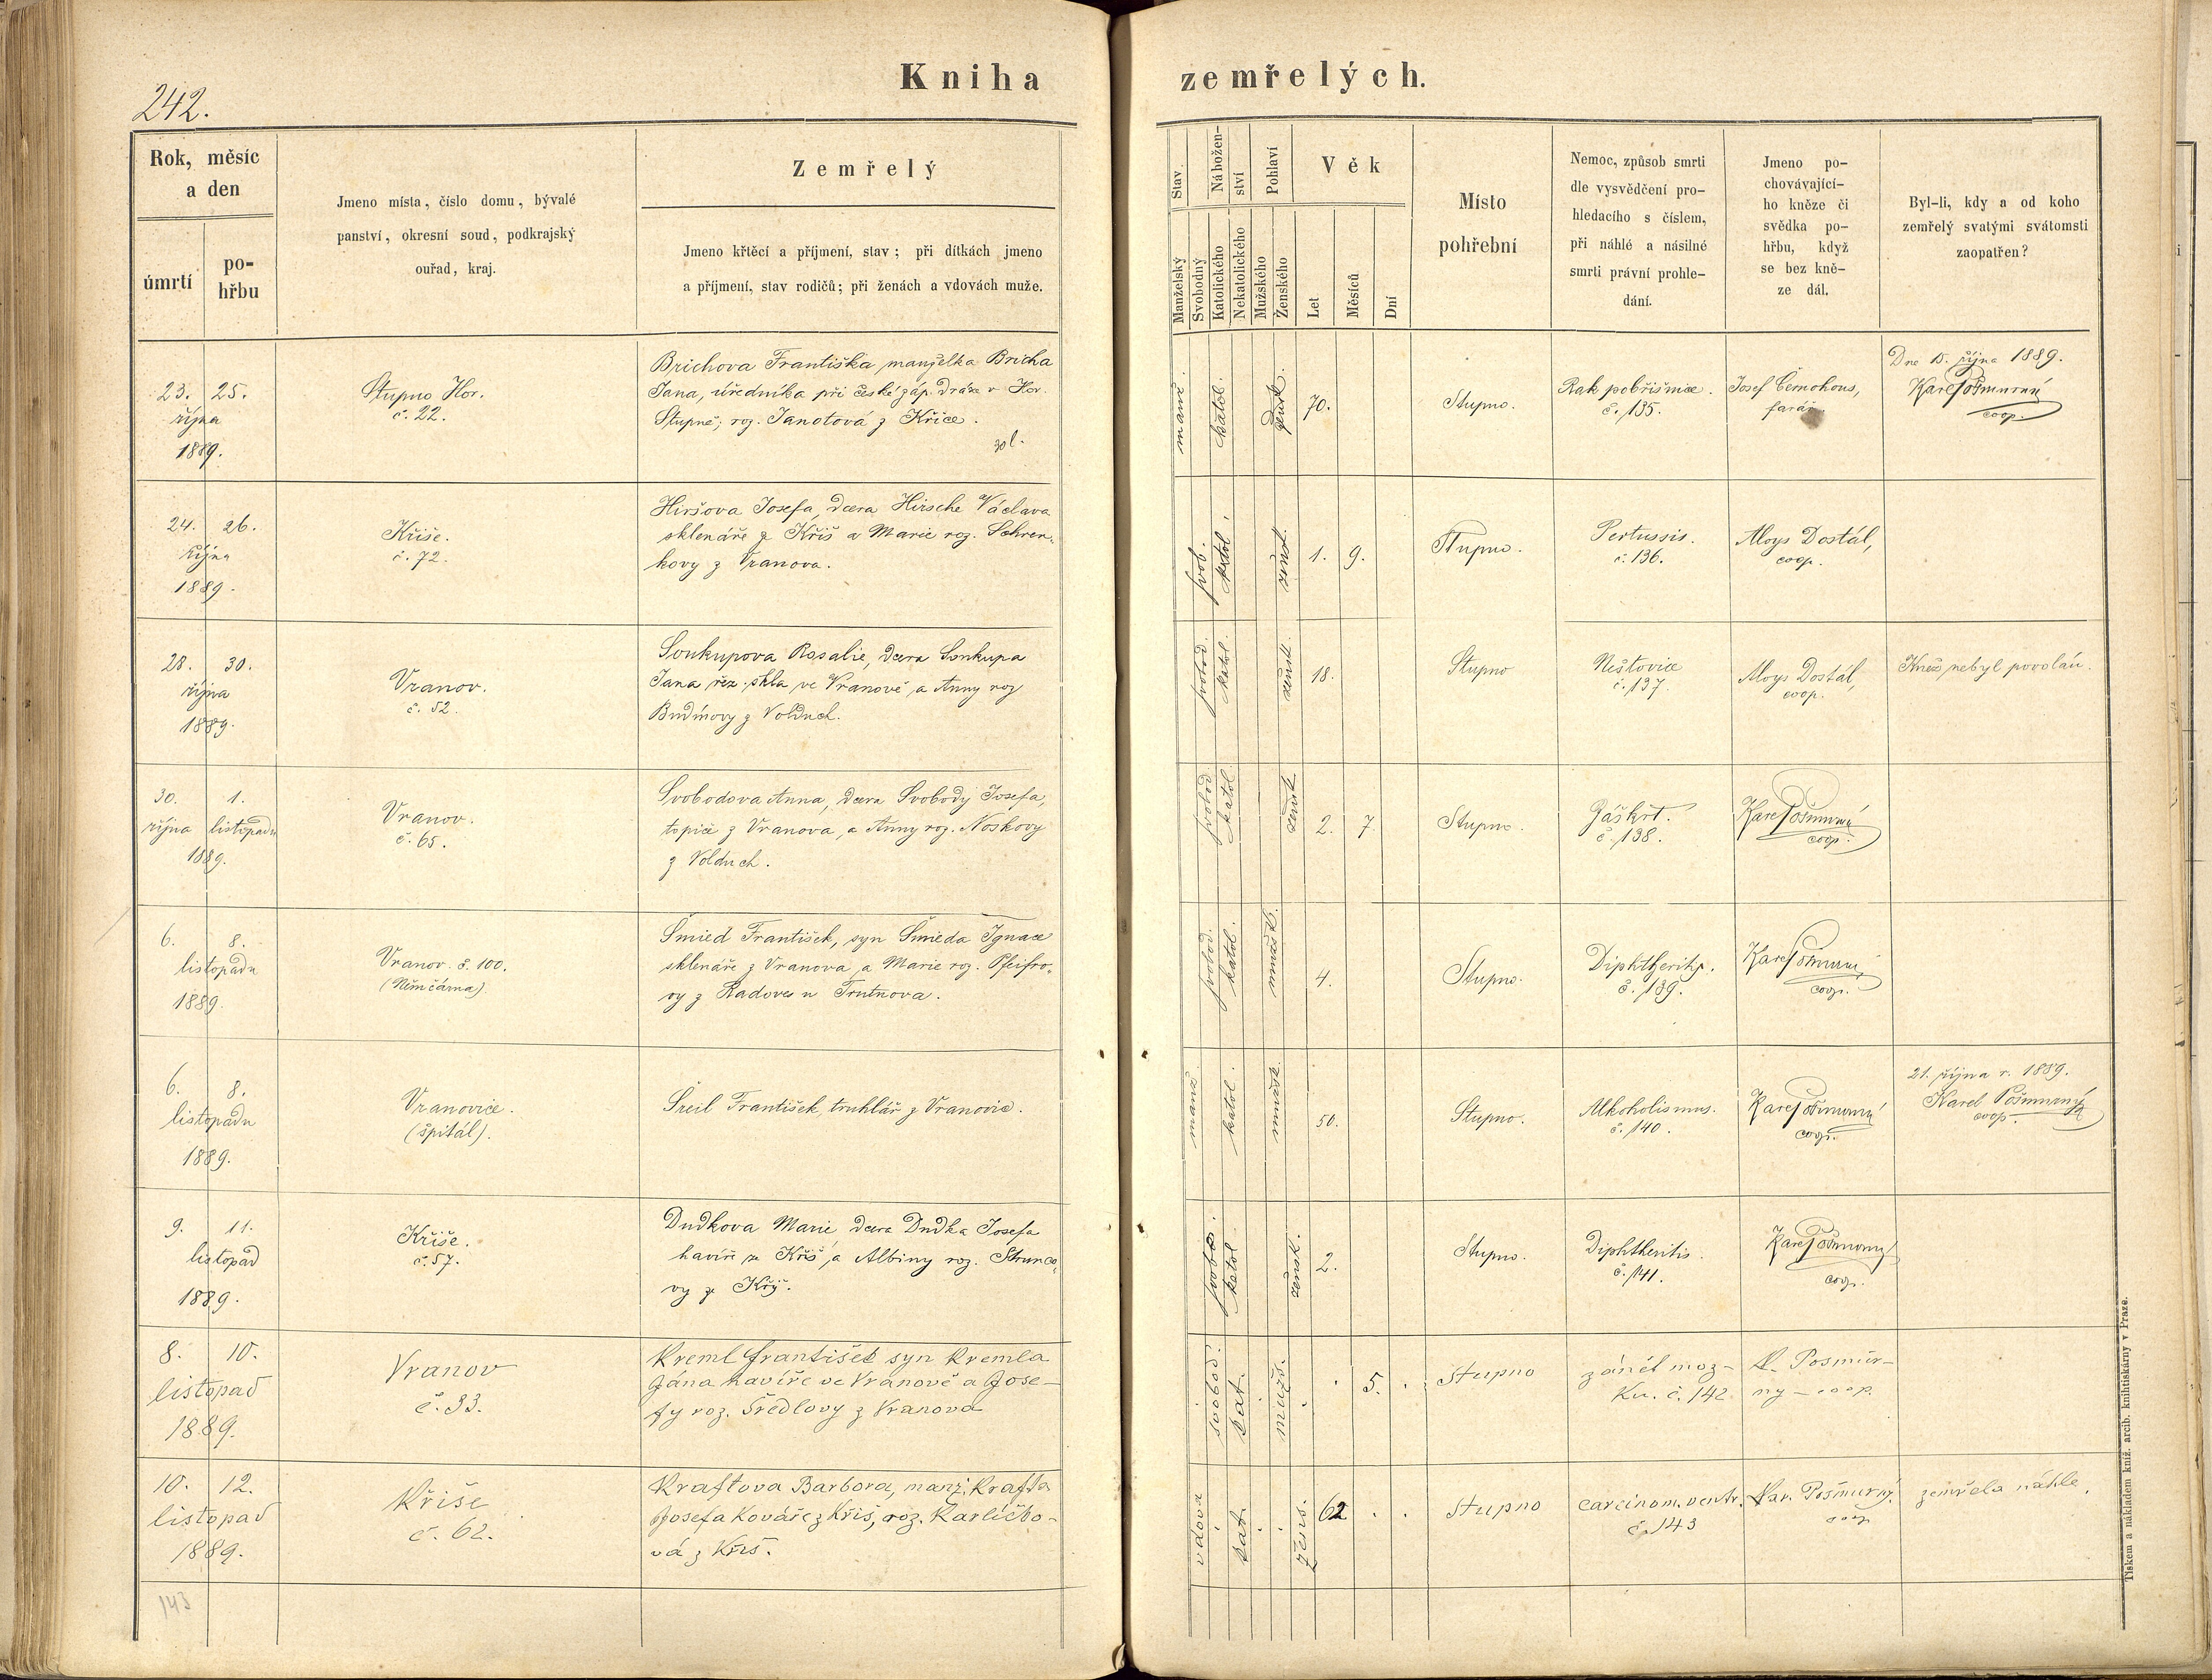 Kniha zemřelých.
242.
Rok, měsíc
a den
úmrtí
po-
hřbu
Jmeno místa, číslo domu, bývalé
panství, okresní soud, podkrajský
ouřad, kraj.
Zemřelý
Jmeno křtěcí a příjmení, stav; při dítkách jmeno
a příjmení, stav rodičů; při ženách a vdovách muže.
Stav.
Manželský
Svobodný
Nábožen-
ství
Katolického
Nekatolického
Pohlaví
Mužského
Ženského
Věk
Let
Měsíců
Dní
Místo
pohřební
Nemoc, způsob smrti
dle vysvědčení pro-
hledacího s číslem,
při náhlé a násilné
smrti právní prohle-
dání.
Jmeno po-
chovávající-
ho kněze či
svědka po-
hřbu, když
se bez kně-
ze dál.
Byl-li, kdy a od koho
zemřelý svatými svátomsti
zaopatřen?
23. 25.
října
1889.
Stupno Hor.
č. 22.
Brichova Františka, manželka Bricha
Jana, úředníka při české záp. dráze v Hor.
Stupně; roz. Janotová z Křice.
manž.
katol.
žensk.
70.
Stupno.
Rak pobřišnice.
č. 135.
Josef Černohous,
farář.
Dne 15. října 1889.
Karel Pošmurný
coop.
24. 26.
října
1889.
Kříše.
č. 72.
Hiršova Josefa, dcera Hirsche Václava
sklenáře z Kříš a Marie roz. Schren-
kovy z Vranova.
svob.
katol.
žensk.
1. 9.
Stupno.
Pertussis.
č. 136.
Aloys Dostál,
coop.
28. 30.
října
1889.
Vranov.
č. 52.
Soukupova Rosalie, dcera Soukupa
Jana řez. skla ve Vranově a Anny roz
Budínovy z Volduch.
svobod.
katol.
žensk.
18.
Stupno
Neštovice
č. 137.
Aloys Dostál,
coop.
Kněz nebyl povolán.
30. 1.
října listopadu
1889.
Vranov.
č. 65.
Svobodova Anna, dcera Svobody Josefa,
topiče z Vranova, a Anny roz. Noskovy
z Volduch.
svobod.
katol.
žensk.
2. 7.
Stupno.
Záškrt.
č. 138.
Karel Pošmurný
coop.
6. 8.
listopadu
1889.
Vranov. č. 100.
(Němčárna).
Šmied František, syn Šmieda Ignace
sklenáře z Vranova, a Marie roz. Pfeifro-
vy z Radoves u Trutnova.
svobod.
katol.
mužsk.
4.
Stupno.
Diphtheritis.
č. 139.
Karel Pošmurný
coop.
6. 8.
listopadu
1889.
Vranovice.
(špitál).
Šreil František, truhlář z Vranovic.
manž.
katol.
mužsk.
50.
Stupno.
Alkoholismus.
č. 140.
Karel Pošmurný
coop.
21. října r. 1889.
Karel Pošmurný
coop.
9. 11.
listopad
1889.
Kříše.
č. 57.
Dudkova Marie, dcera Dudka Josefa
havíře z Kříš, a Albiny roz. Strunco-
vy z Kříš.
svobod.
katol.
žensk.
2.
Stupno.
Diphtheritis.
č. 141.
Karel Pošmurný
coop.
8. 10.
listopad
1889.
Vranov
č. 33.
Kreml František syn Kremla
Jána havíře ve Vranově a Jose-
fy roz. Šredlovy z Vranova
svobod.
kat.
mužs.
5.
Stupno
zánět moz-
ku. č. 142
K. Posmúr-
ny – coop.
10. 12.
listopad
1889.
Kříše
č. 62.
Kraftova Barbora, manž. Krafta
Josefa Kováře z Kříš, roz. Karlíčko-
vá z Kříš.
vdova
kat.
žens.
62
Stupno
carcinom. ventr.
č. 143
Kar. Pošmurný.
coop
zemřela náhle.
143
Tiskem a nákladem kníž. arcib. knihtiskárny v Praze.